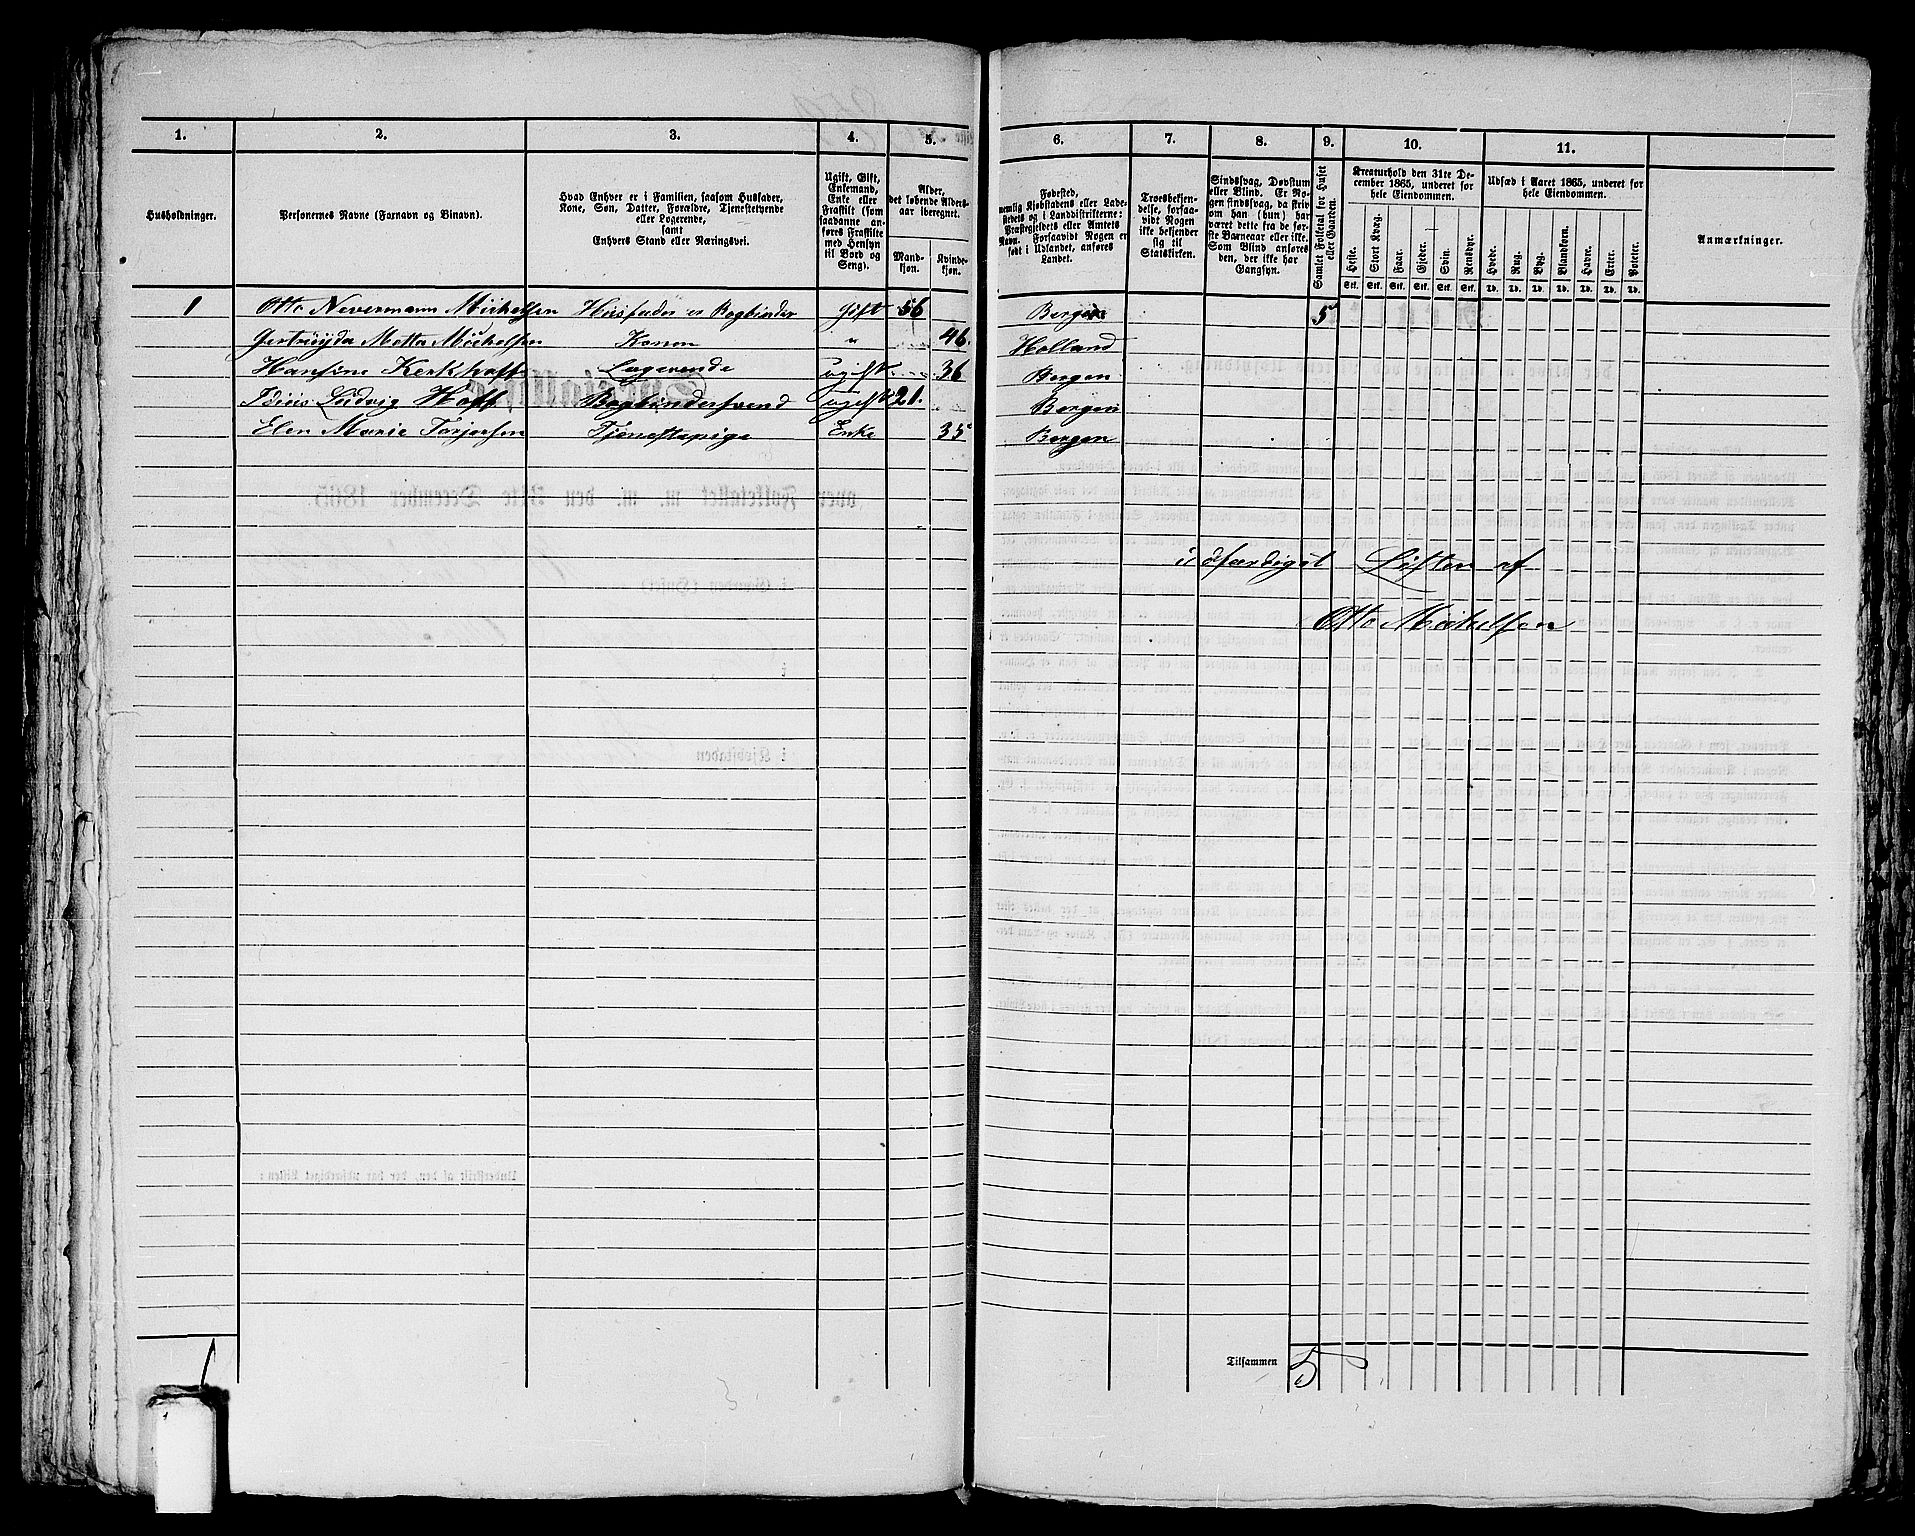 1. 2. 3. 4. 5. 6. 7. 8. 9. 10. 11.
Husholdninger.
Personernes Navne (Fornavn og Binavn).
Hvad Enhver er i Familien, saasom Husfader,
Kone, Søn, Datter, Forældre, Tjenestetyende
eller Logerende,
samt
Enhvers Stand eller Næringsvei.
Ugift, Gift,
Enkemand,
Enke eller
Fraskilt (som
saadanne an-
føres Fraskilte
med Hensyn
til Bord og
Seng).
Alder,
det løbende Alders-
aar iberegnet.
Mand-
kjøn.
Kvinde-
kjøn.
Fødested,
nemlig Kjøbstadens eller Lade-
stedets og i Landdistrikterne:
Præstegjeldets eller Amtets
Navn. Forsaavidt Nogen er
født i Udlandet, anføres
Landet.
Troesbekjen-
delse, forsaa-
vidt Nogen
ikke bekjender
sig til
Statskirken.
Sindssvag, Døvstum
eller Blind. Er No-
gen sindssvag, da skriv
om han (hun) har
været dette fra de før-
ste Barneaar eller ikke.
Som Blind anføres
den, der ikke har
Gangsyn.
Samlet Folketal for Huset
eller Gaarden.
Kreaturhold den 31te De-
cember 1865, underet for
hele Eiendommen.
Heste. Stort Kvæg. Faar. Gjeder. Svin. Rensdyr.
Stk. Stk. Stk. Stk. Stk. Stk.
Udsæd i Aaret 1865, underet for
hele Eiendommen.
Hvede. Rug. Byg. Blandkorn. Havre. Erter. Poteter.
Td. Td. Td. Td. Td. Td. Td.
Anmærkninger.
1 Otto Nevermann Michelsen Husfader er Bogbinder Gift 56 Bergen 5
Metta Michelsen Konen " 46. Holland
Hansine Kerkhoff Logerende ugift 36 Bergen
Ludvig Hoff Bogbindersvend ugift 21. Bergen
Elen Marie Torjersen Tjenestepige Enke 35 Bergen
udfærdiget Listen af
Otto Michelsen
1 Tilsammen 5